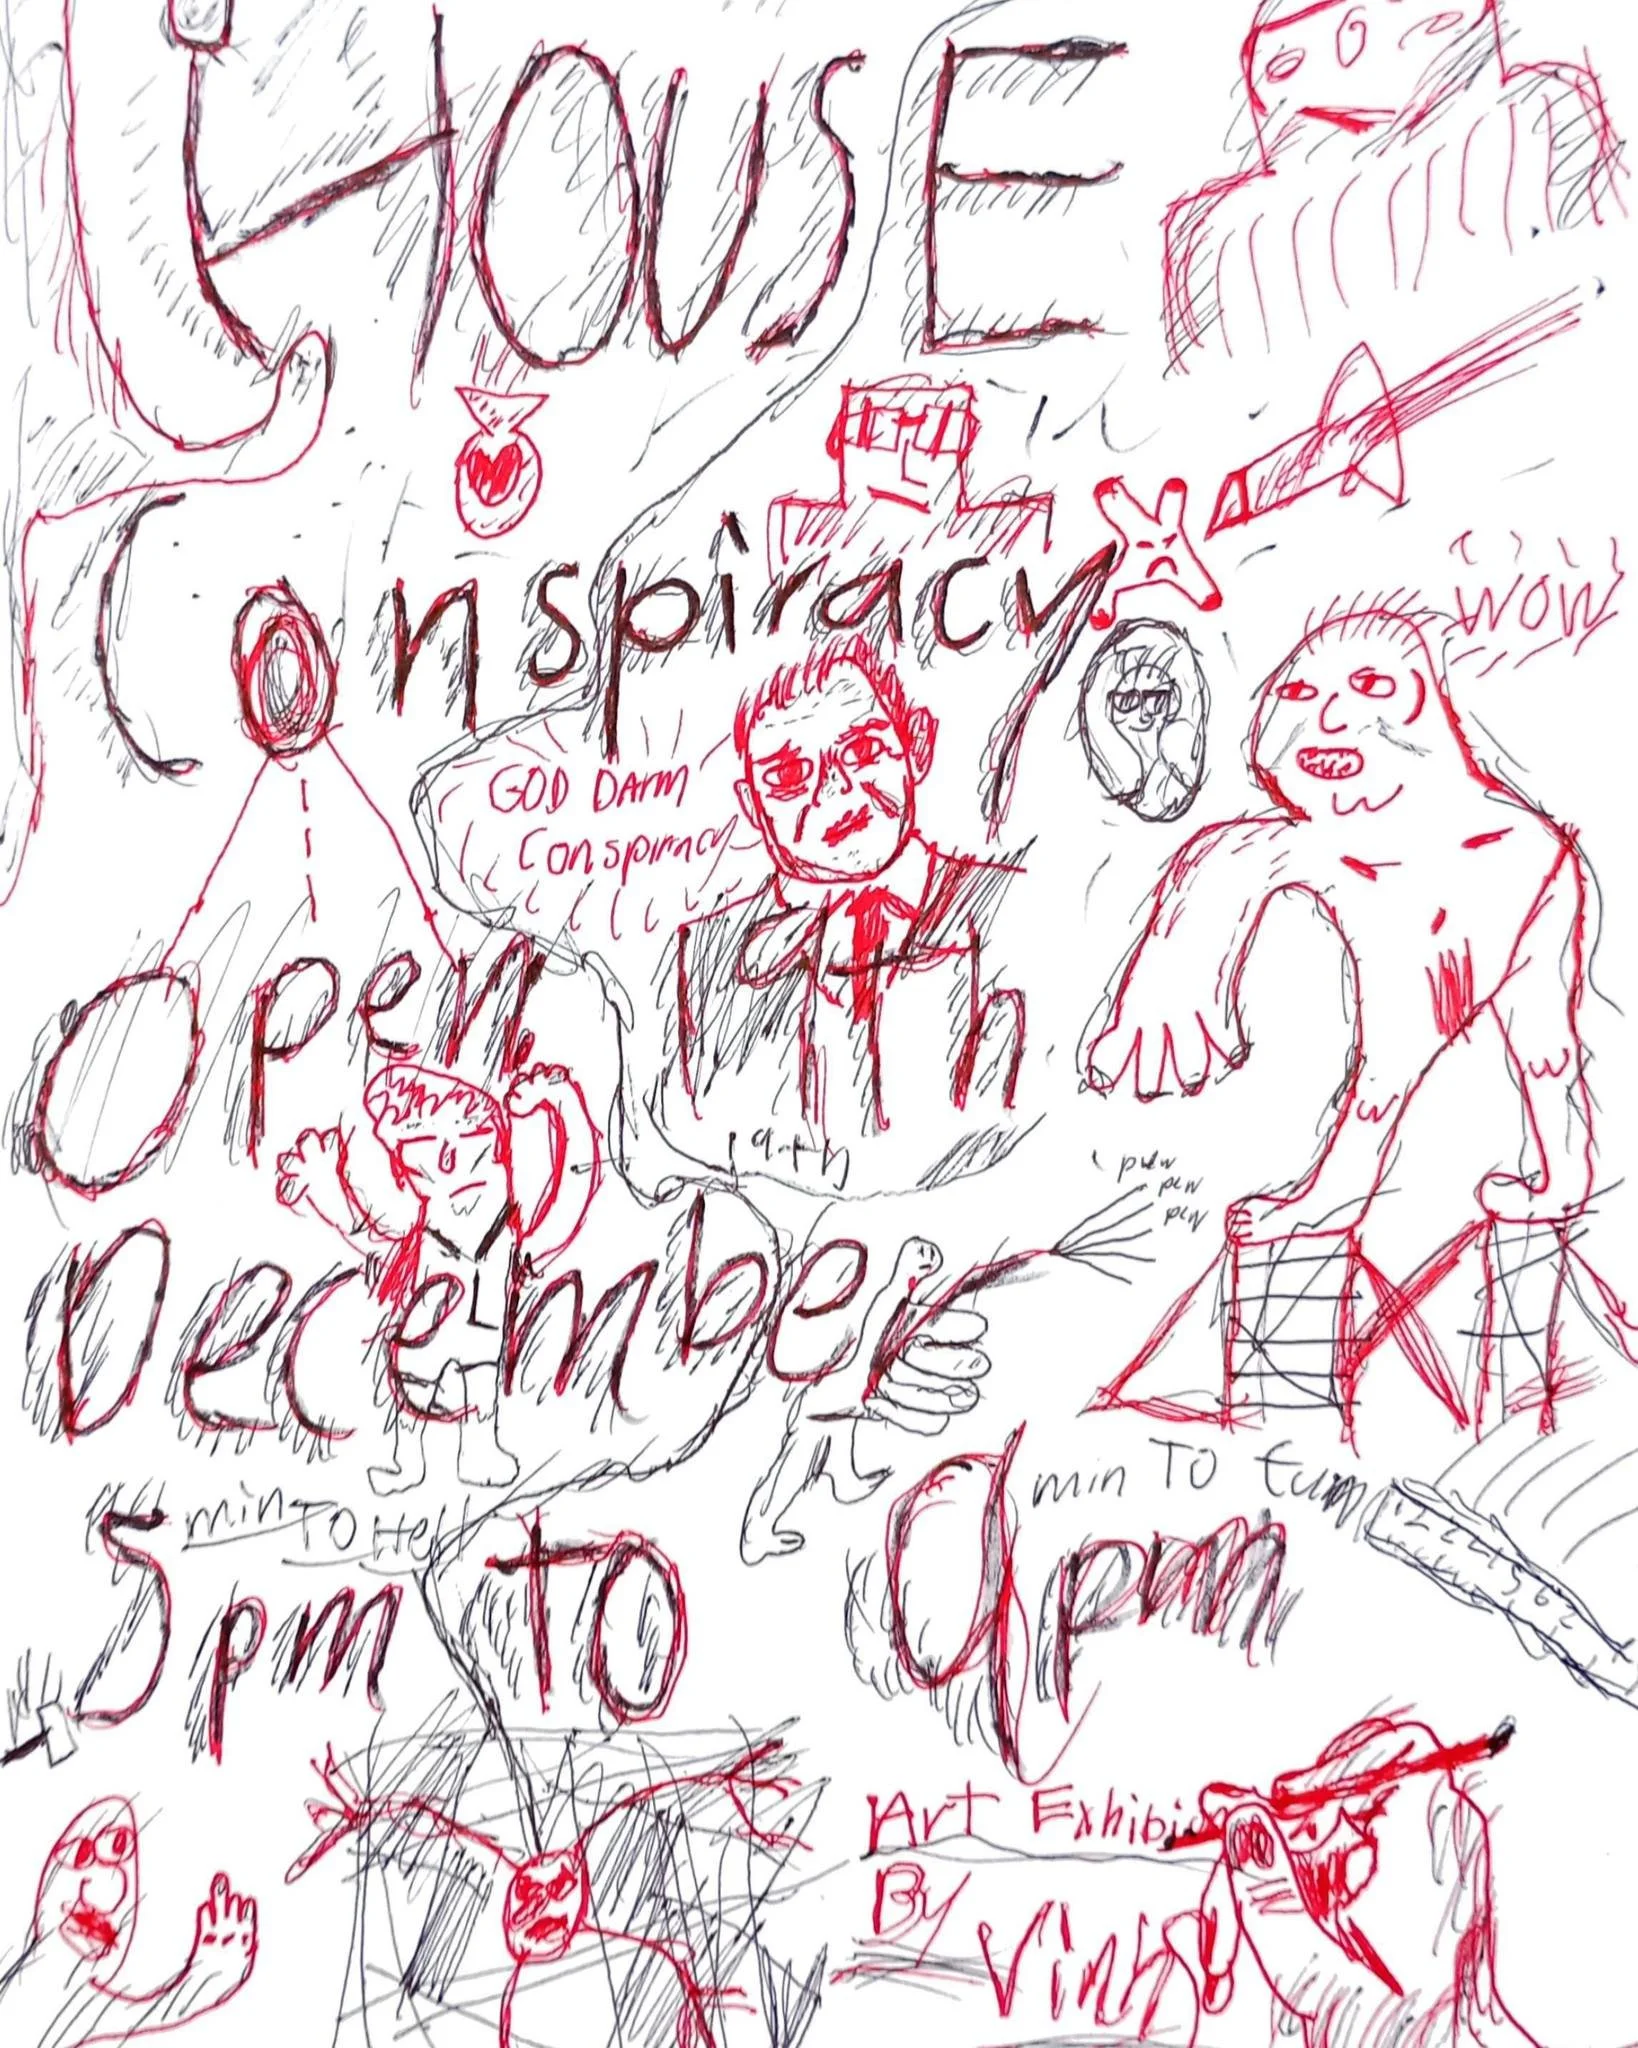 HOUSE
Conspiracy
WOW
GOD DAMM
Conspiracy
Open 19th
19th
pew
pew
pew
December
min TO Hell
min TO
5pm to 9pm
Art Exhibi
By Vinh